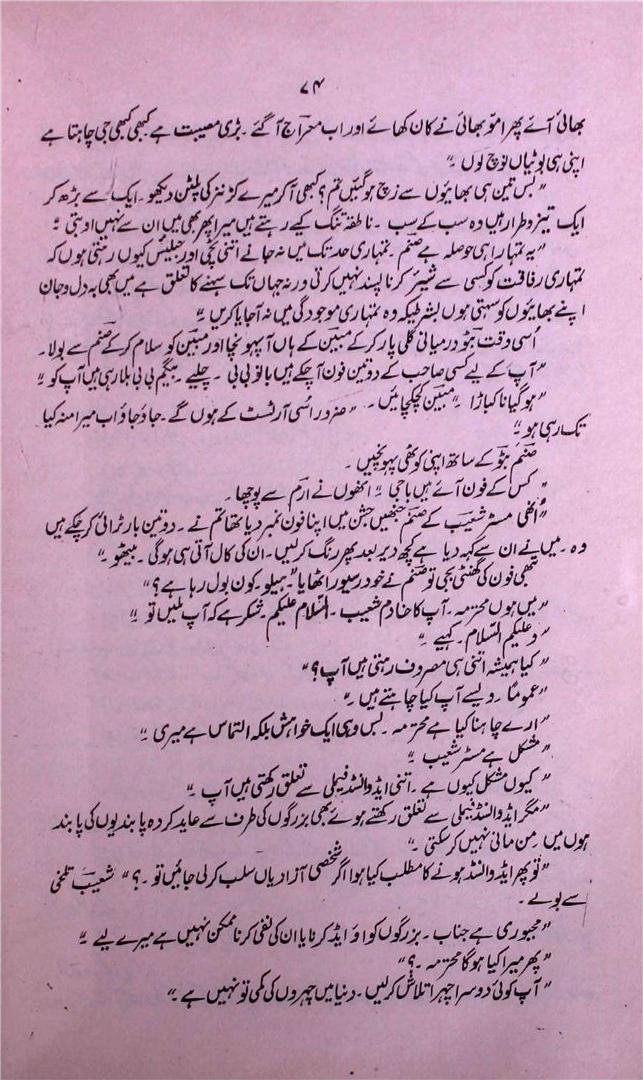 ۷۴
بھائی آئے پھر امو بھائی نے کان کھائے اور اب معراج آ گئے ۔ بڑی مصیبت ہے کبھی کبھی جی چاہتا ہے
اپنی ہی بوٹیاں نوچ لوں ۔"
"بس تین ہی بھائیوں سے زچ ہوگئیں تم؟ کبھی آ کر میرے کزنز کی پلٹن دیکھو ۔ ایک سے بڑھ کر
ایک تیز و طرار ہیں وہ سب کے سب ۔ ناطقہ تنگ کیے رہتے ہیں میرا پھر بھی میں ان سے نہیں اوبتی ۔"
"یہ تمہارا ہی حوصلہ ہے صنم ۔ تمہاری حد تک میں نہ جانے اتنی پچی اور جیلیس کیوں رہتی ہوں کہ
تمہاری رفاقت کو کسی سے شیئر کرنا پسند نہیں کرتی ورنہ جہاں تک سہنے کا تعلق ہے میں بھی بہ دل و جان
اپنے بھائیوں کو سہتی ہوں بشرطیکہ وہ تمہاری موجودگی میں نہ آ جایا کریں ۔"
اُسی وقت بٹو درمیانی گلی پار کر کے مبین کے ہاں آ پہونچا اور مبین کو سلام کر کے صنم سے بولا ۔
"آپ کے لیے کسی صاحب کے دو تین فون آ چکے ہیں بانو بی بی ۔ چلیے ۔ بیگم بی بی بلا رہی ہیں آپ کو ۔"
"ہو گیا نا کباڑا ۔" مبین کچکچائیں ۔ "ضرور اُسی آرٹسٹ کے ہوں گے ۔ جاؤ جاؤ اب میرا منہ کیا
تک رہی ہو ۔"
صنم بٹو کے ساتھ اپنی کوٹھی پہونچیں ۔
"کس کے فون آئے ہیں باجی ۔" انھوں نے ارم سے پوچھا ۔
"انھی مسٹر شعیب کے صنم جنھیں جشن میں اپنا فون نمبر دیا تھا تم نے ۔ دو تین بار ٹرائی کر چکے ہیں
وہ ۔ میں نے ان سے کہہ دیا ہے کچھ دیر بعد پھر رنگ کر لیں ۔ ان کی کال آتی ہی ہوگی ۔ بیٹھو ۔"
تبھی فون کی گھنٹی بجی تو صنم نے خود رسیور اٹھایا "ہیلو ۔ کون بول رہا ہے؟"
"میں ہوں محترمہ ۔ آپ کا خادم شعیب ۔ السّلام علیکم ۔ شکر ہے کہ آپ ملیں تو ۔"
"وعلیکم السّلام ۔ کہیے ۔"
"کیا ہمیشہ اتنی ہی مصروف رہتی ہیں آپ؟"
"عموماً ۔ ویسے آپ کیا چاہتے ہیں ۔"
"ارے چاہنا کیا ہے محترمہ ۔ بس وہی ایک خواہش بلکہ التماس ہے میری ۔"
"مشکل ہے مسٹر شعیب ۔"
"کیوں مشکل کیوں ہے ۔ اتنی ایڈوانسڈ فیملی سے تعلق رکھتی ہیں آپ ۔"
"مگر ایڈوانسڈ فیملی سے تعلق رکھتے ہوئے بھی بزرگوں کی طرف سے عاید کردہ پابندیوں کی پابند
ہوں میں ۔ من مانی نہیں کر سکتی ۔"
"تو پھر ایڈوانسڈ ہونے کا مطلب کیا ہوا اگر شخصی آزادیاں سلب کر لی جائیں تو ۔ ؟" شعیب تلخی
سے بولے ۔
"مجبوری ہے جناب ۔ بزرگوں کو اوایڈ کرنا یا ان کی نفی کرنا ممکن نہیں ہے میرے لیے ۔"
"پھر میرا کیا ہوگا محترمہ ۔ ؟"
"آپ کوئی دوسرا چہرا تلاش کر لیں ۔ دنیا میں چہروں کی کمی تو نہیں ہے ۔"